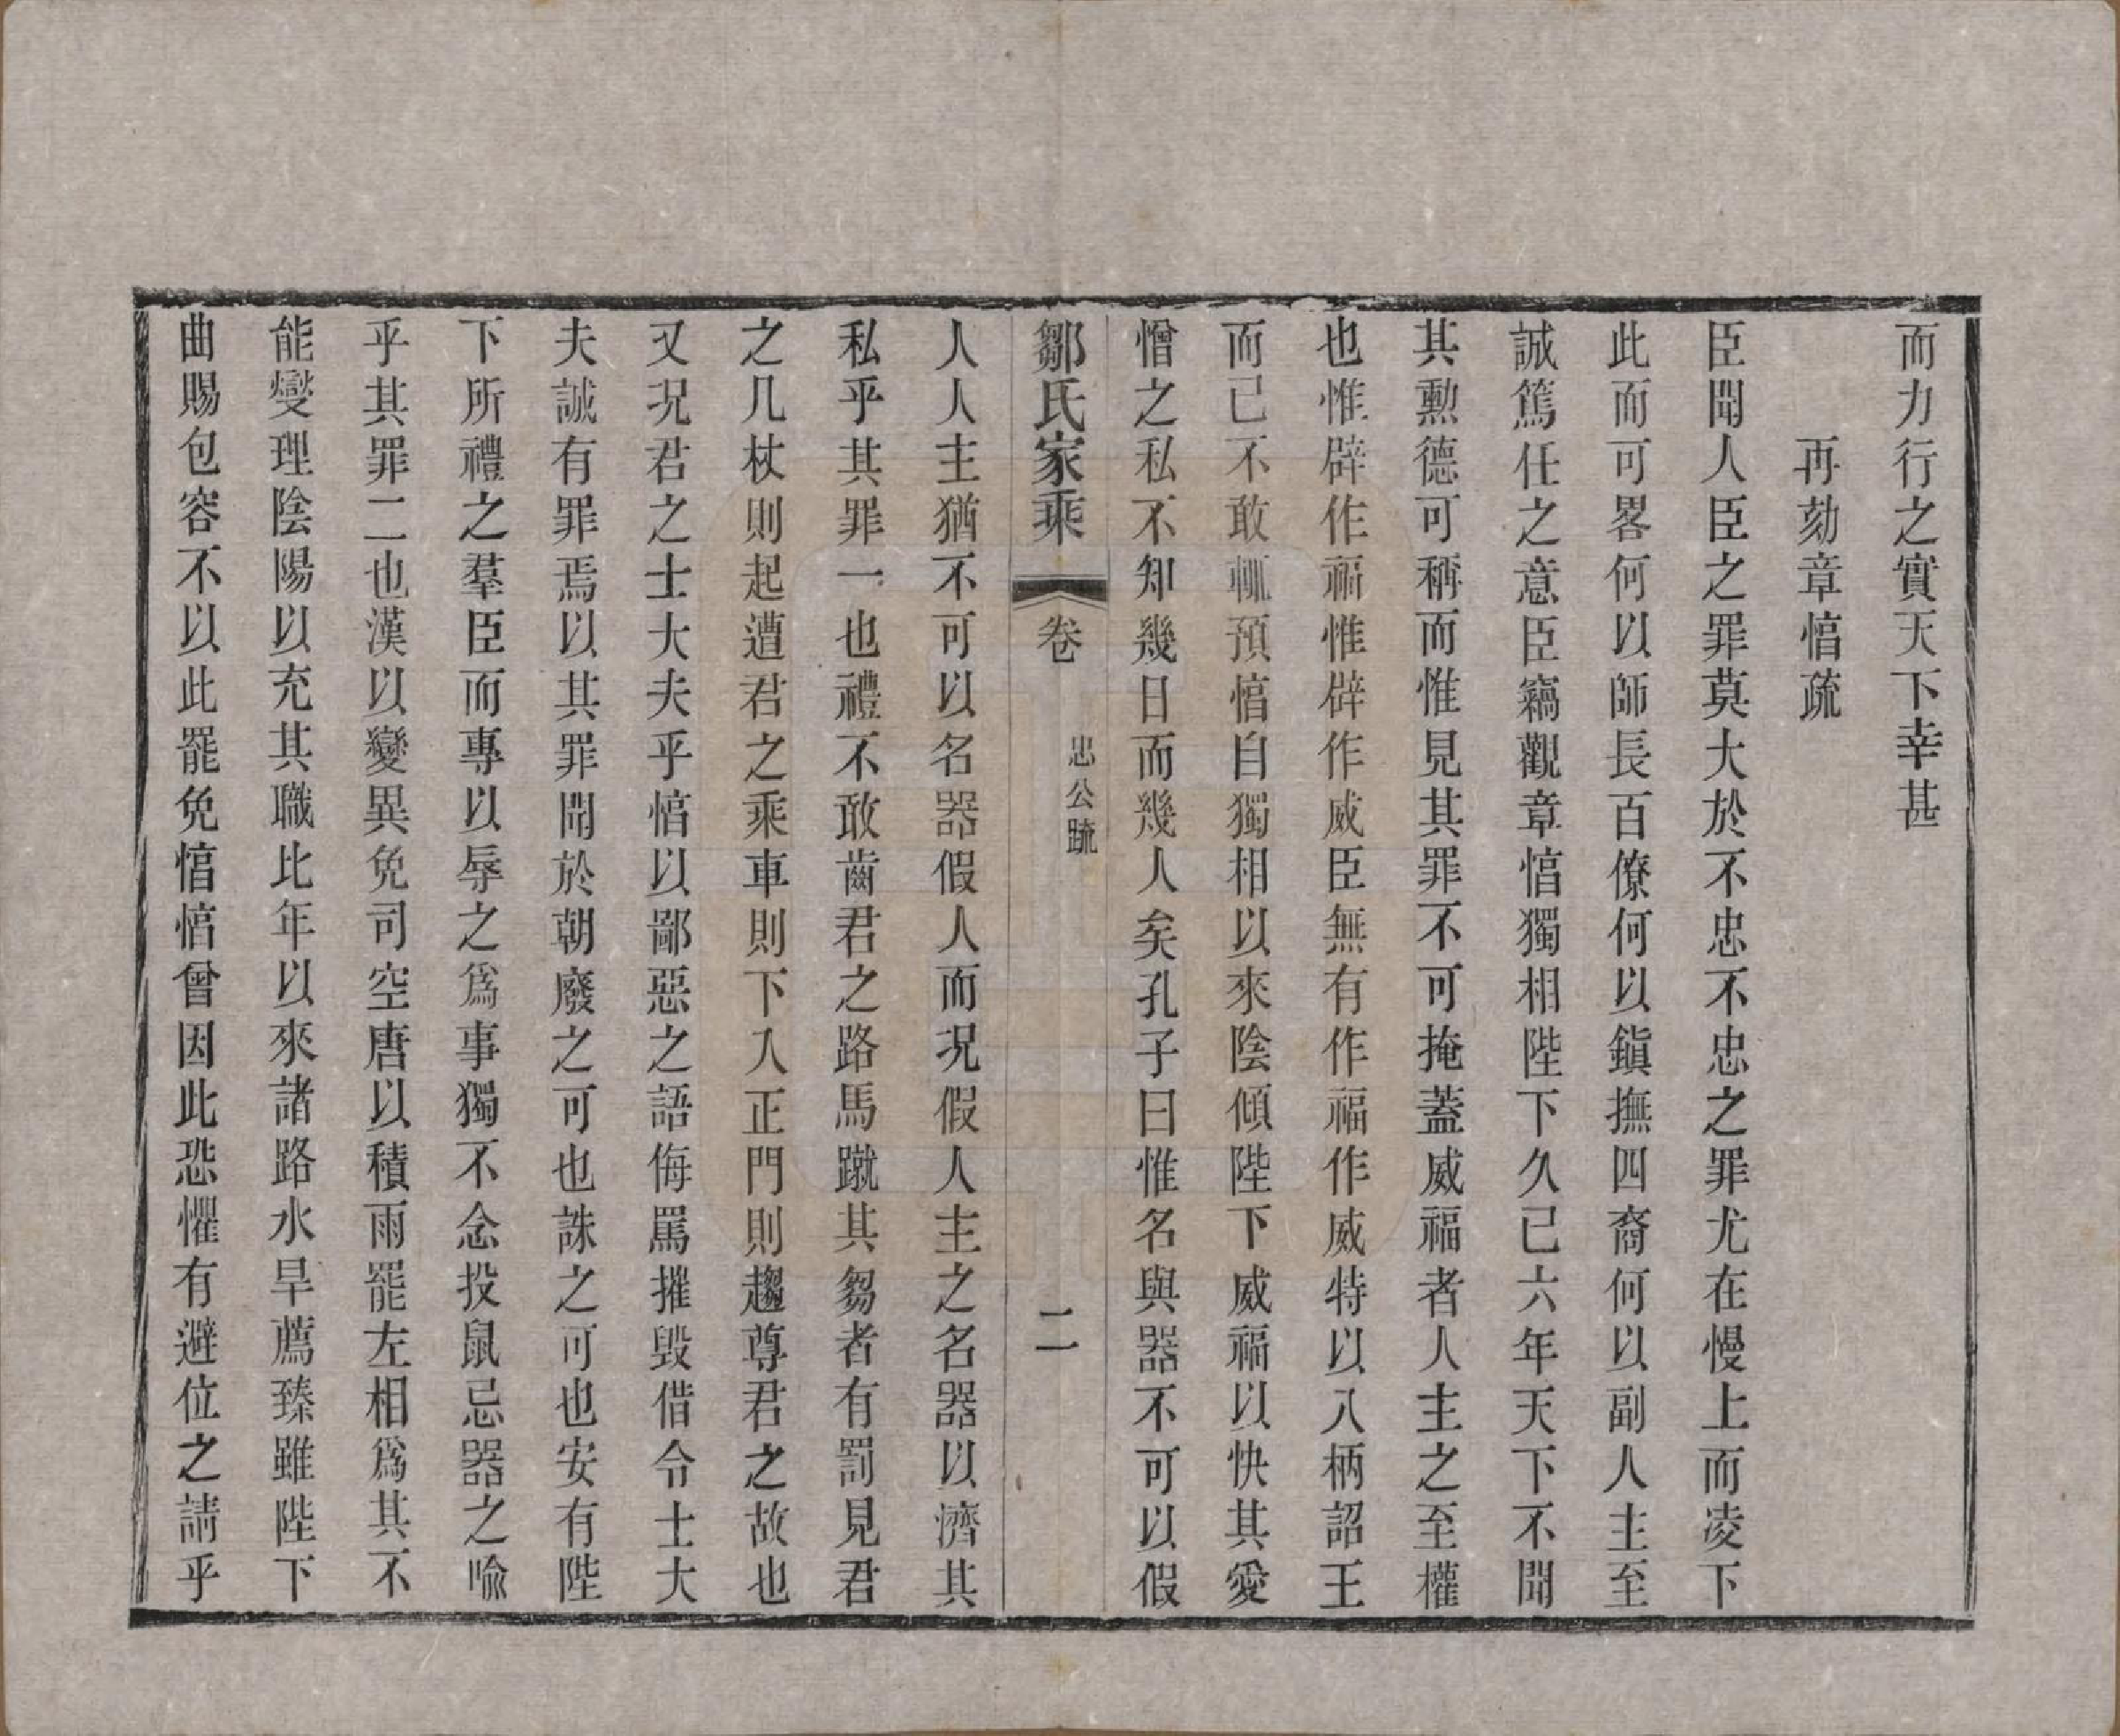 而力行之實天下幸甚
再劾章惇疏
臣聞人臣之罪莫大於不忠不忠之罪尤在慢上而凌下
此而可畧何以師長百僚何以鎭撫四裔何以副人主至
誠篤任之意臣竊觀章惇獨相陛下久已六年天下不聞
其勳德可稱而惟見其罪不可掩蓋威福者人主之至權
也惟辟作福惟辟作威臣無有作福作威特以八柄詔王
而已不敢輒預惇自獨相以來陰傾陛下威福以快其愛
憎之私不知幾日而幾人矣孔子曰惟名與器不可以假
鄒氏家乘
卷
忠公疏
二
人人主猶不可以名器假人而況假人主之名器以濟其
私乎其罪一也禮不敢齒君之路馬蹴其芻者有罰見君
之几杖則起遭君之乘車則下入正門則趨尊君之故也
又況君之士大夫乎惇以鄙惡之語侮罵摧毀借令士大
夫誠有罪焉以其罪聞於朝廢之可也誅之可也安有陛
下所禮之羣臣而專以辱之爲事獨不念投鼠忌器之喻
乎其罪二也漢以變異免司空唐以積雨罷左相爲其不
能燮理陰陽以充其職比年以來諸路水旱薦臻雖陛下
曲賜包容不以此罷免惇惇曾因此恐懼有避位之請乎